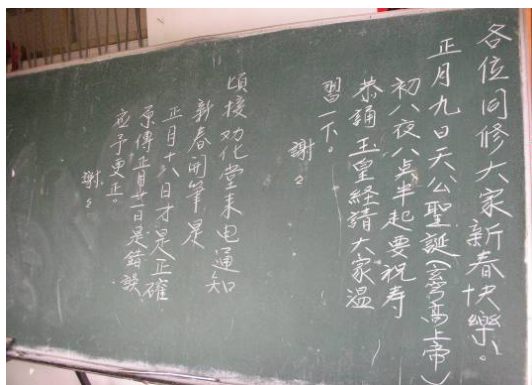 各位同修大家新春快樂。
正月九日天公聖誕(玄穹高上帝)
初八夜八点半起要祝寿
恭誦玉皇経請大家温
習一下。
謝々
頃接劝化堂来电通知
新春開筆是
正月十八日才是正確
原傳正月廿一日是錯誤
应予更正。
謝々